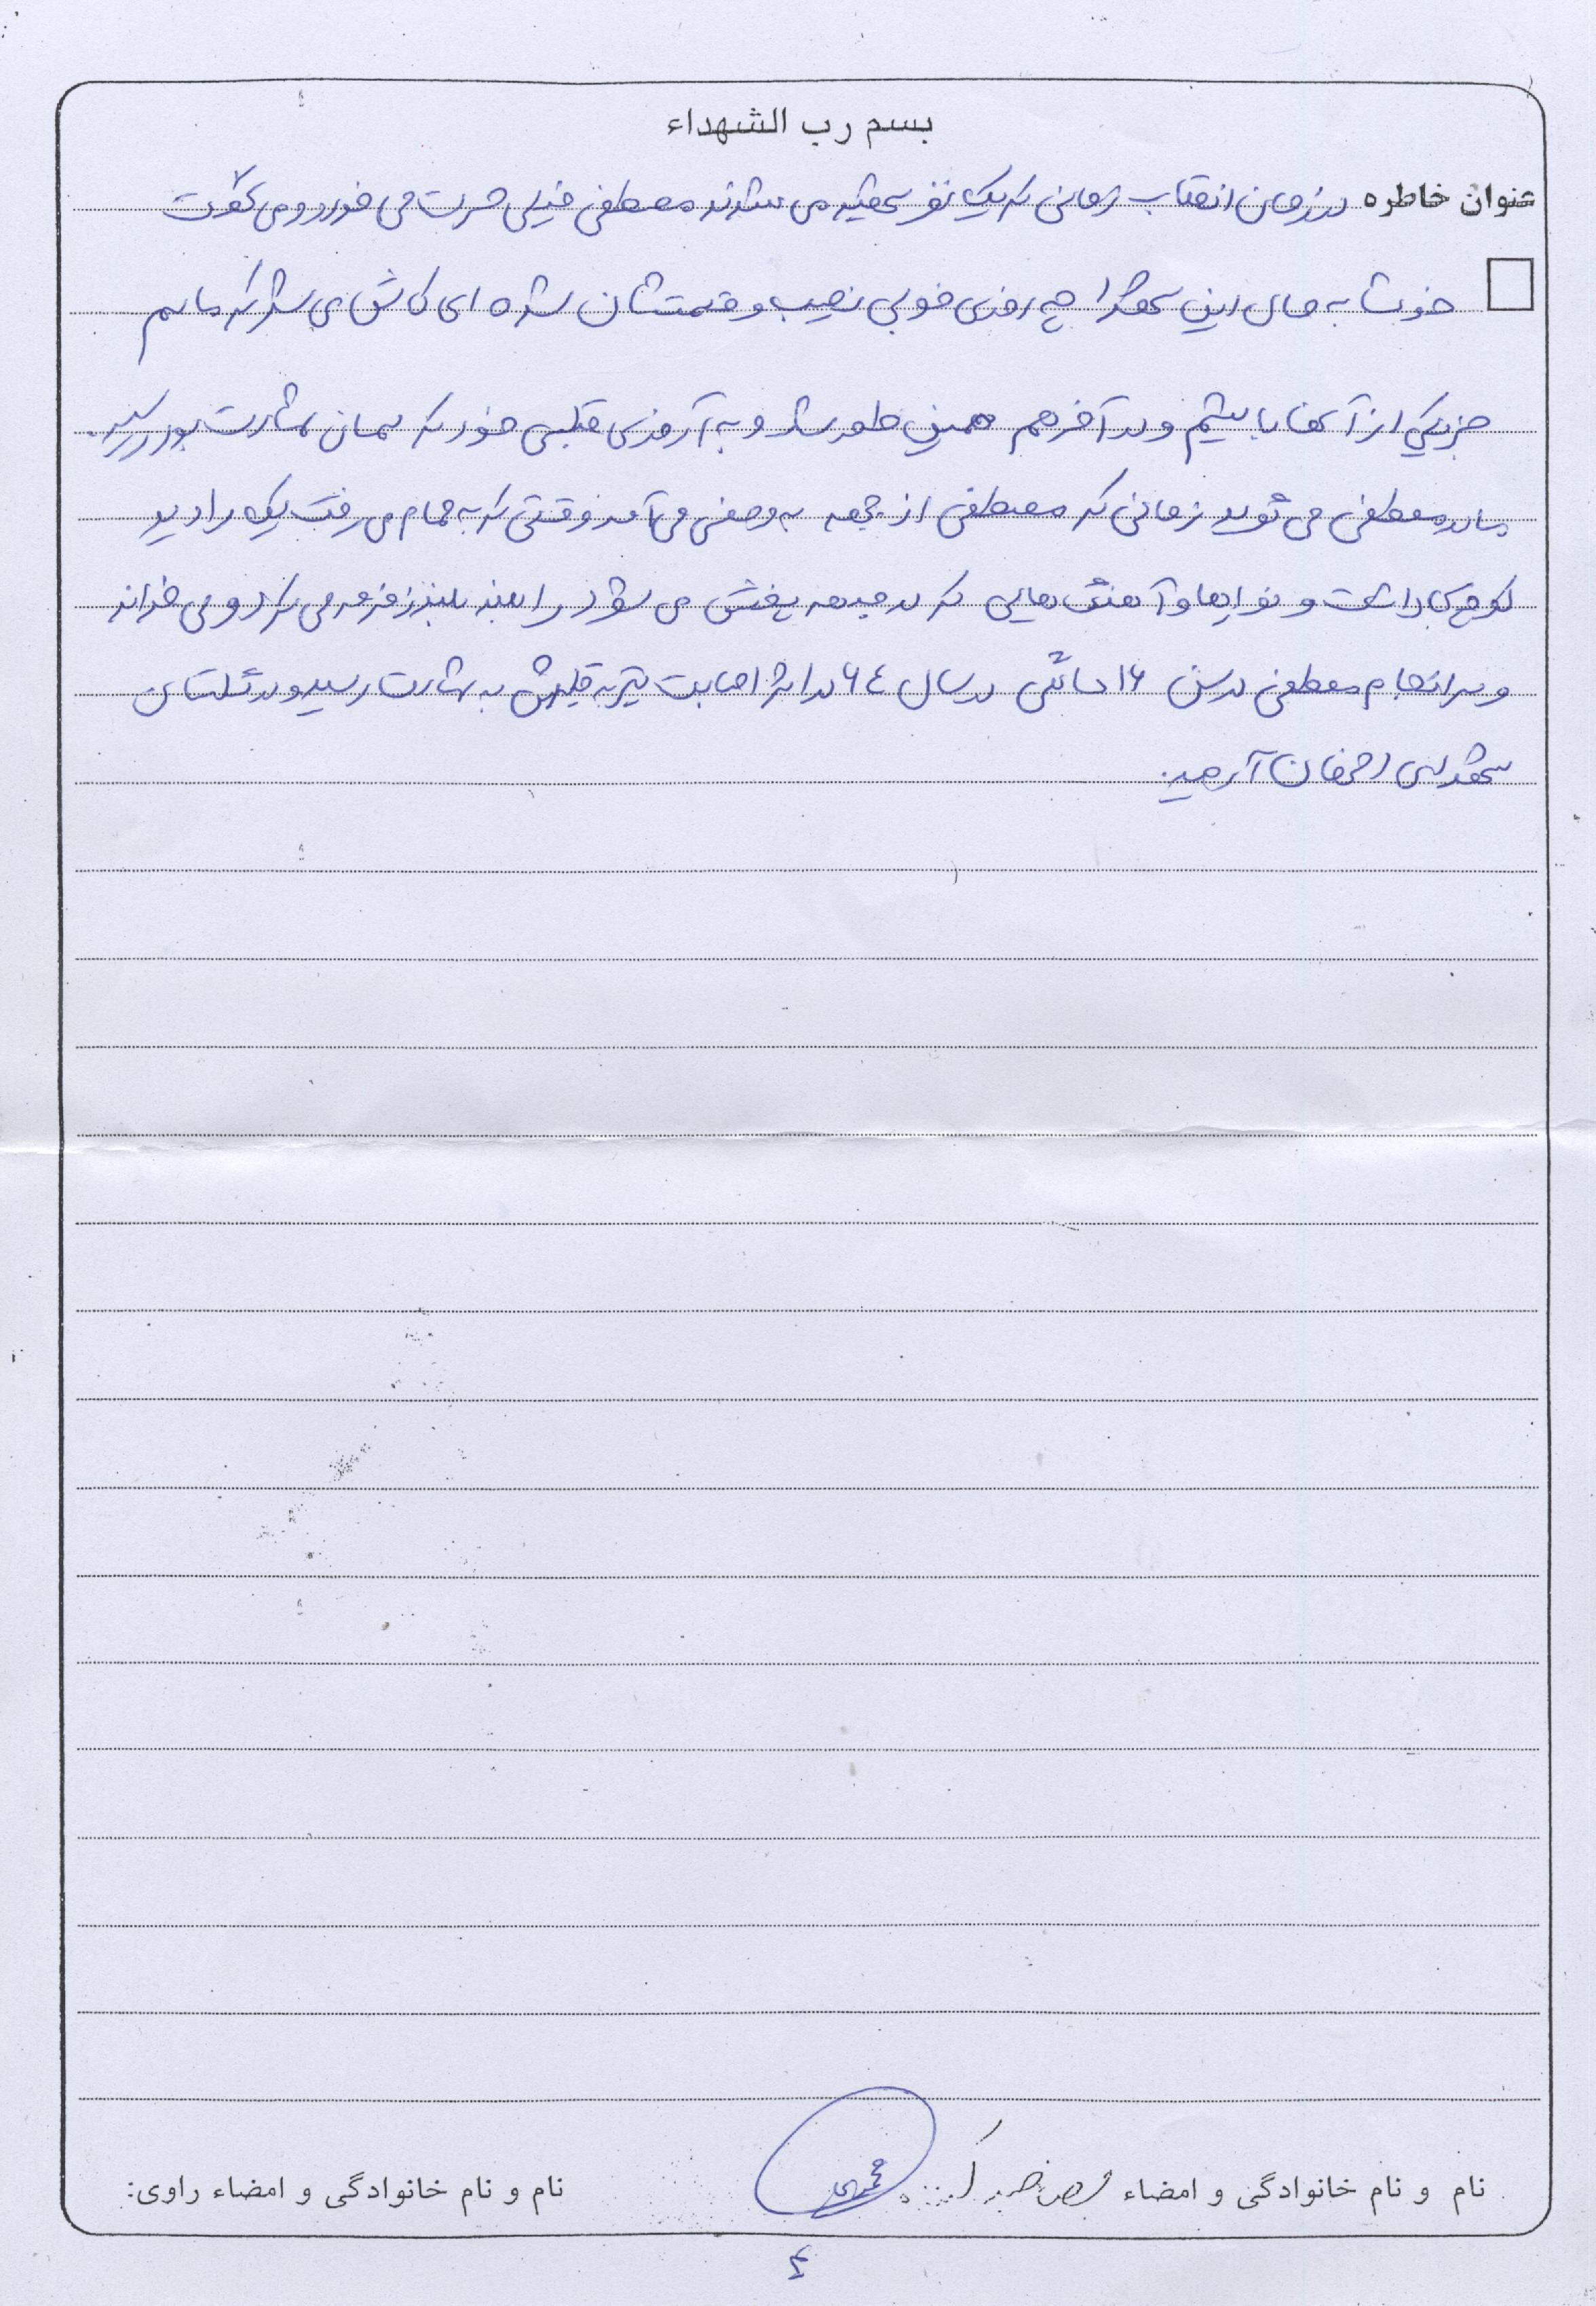 بسم رب الشهداء
عنوان خاطره در زمان انقلاب زمانی که یک نفر شهید می شدند مصطفی خیلی حسرت می خورد و می گفت
خوشا به حال این شهدا چه روزی خوبی نصیب و قسمتشان شده ای کاش می شد که ما هم
جزیکی از آنها باشیم و در آخر هم همین طور شد و به آرزوی قلبی خود که همان شهادت بود رسید.
مادر مصطفی می گوید زمانی که مصطفی از جبهه به مرخصی می آمد وقتی که به حمام می رفت یک رادیو
کوچکی داشت و نوارها و آهنگ هایی که در جبهه پخش می شود را بلند بلند زمزمه می کرد و می خواند
و سرانجام مصطفی در سن ۱۶ سالگی در سال ۶۴ در اثر اصابت تیر به قلبش به شهادت رسید و در گلستان
شهدای اصفهان آرمید.
نام و نام خانوادگی و امضاء
محمدی
نام و نام خانوادگی و امضاء راوی:
٤